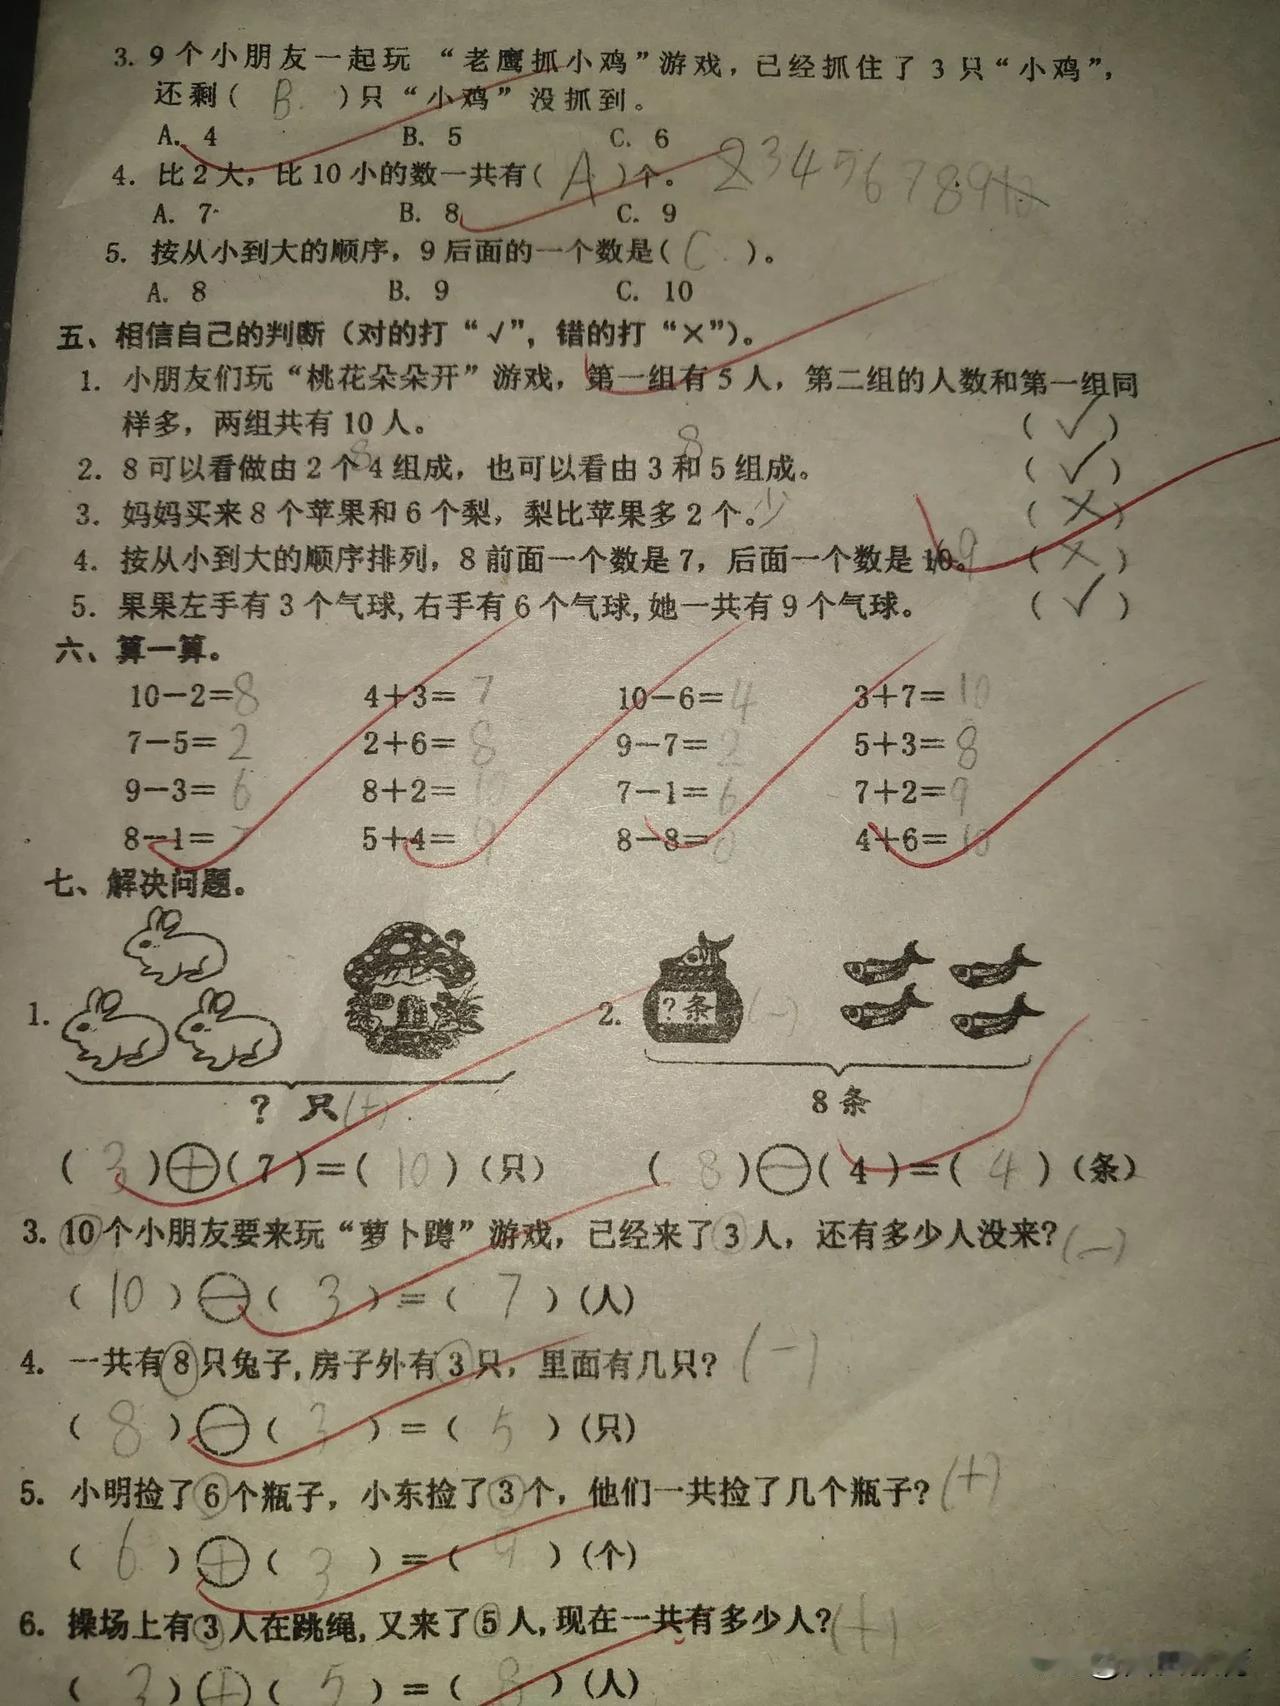 3. 9个小朋友一起玩“老鹰抓小鸡”游戏，已经抓住了3只“小鸡”，
还剩( B )只“小鸡”没抓到。
A. 4 B. 5 C. 6
4. 比2大，比10小的数一共有( A )个。 2 3 4 5 6 7 8 9 10
A. 7 B. 8 C. 9
5. 按从小到大的顺序，9后面的一个数是( C )。
A. 8 B. 9 C. 10
五、相信自己的判断（对的打“√”，错的打“×”）。
1. 小朋友们玩“桃花朵朵开”游戏，第一组有5人，第二组的人数和第一组同
样多，两组共有10人。 ( √ )
8 8
2. 8可以看做由2个4组成，也可以看由3和5组成。 ( √ )
3. 妈妈买来8个苹果和6个梨，梨比苹果多2个。少 ( × )
4. 按从小到大的顺序排列，8前面一个数是7，后面一个数是10。9 ( × )
5. 果果左手有3个气球,右手有6个气球,她一共有9个气球。 ( √ )
六、算一算。
10-2=8 4+3=7 10-6=4 3+7=10
7-5=2 2+6=8 9-7=2 5+3=8
9-3=6 8+2=10 7-1=6 7+2=9
8-1=7 5+4=9 8-8=0 4+6=10
七、解决问题。
1. 2. ?条 (-)
? 只(+) 8条
( 3 )+( 7 )=( 10 )(只) ( 8 )-( 4 )=( 4 )(条)
3. 10个小朋友要来玩“萝卜蹲”游戏，已经来了3人，还有多少人没来?(-)
( 10 )-( 3 )=( 7 )(人)
4. 一共有8只兔子,房子外有3只，里面有几只? (-)
( 8 )-( 3 )=( 5 )(只)
5. 小明捡了6个瓶子，小东捡了3个，他们一共捡了几个瓶子?(+)
( 6 )+( 3 )=( 9 )(个)
6. 操场上有3人在跳绳,又来了5人,现在一共有多少人?(+)
( 3 )(+)( 5 )=( 8 )(人)